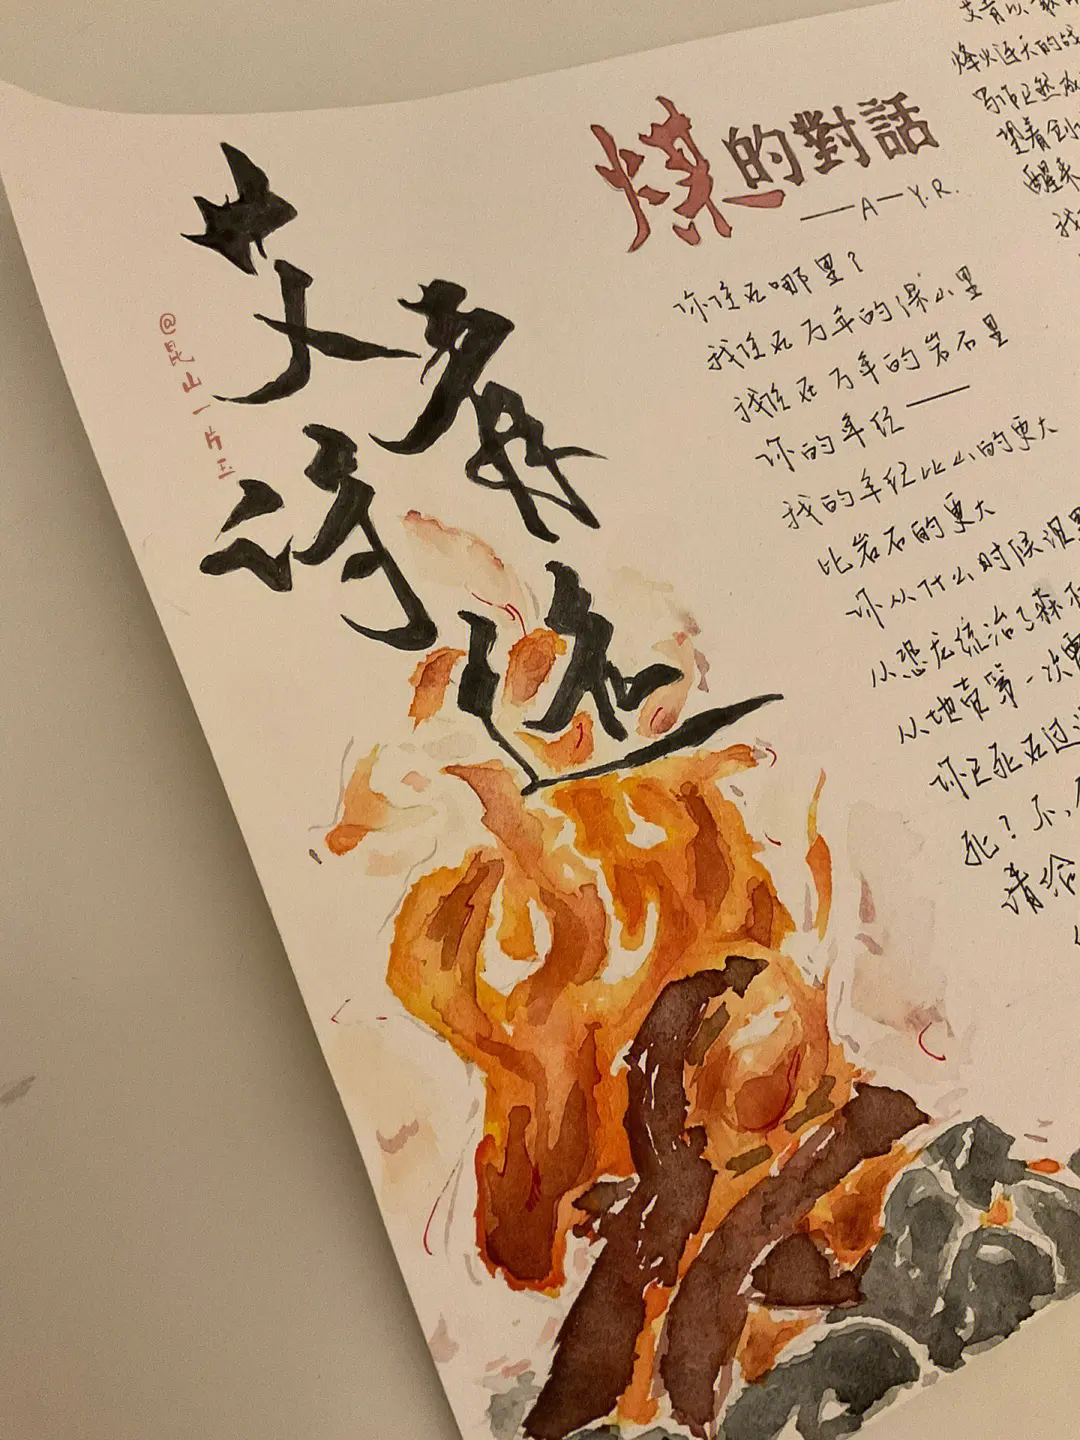 艾青
诗选
@昆山一片玉
煤的對話
——A—Y.R.
你住在哪里?
我住在万年的深山里
我住在万年的岩石里
你的年纪——
我的年纪比山的更大
比岩石的更大
你从什么时候沉
从恐龙统治了森
从地壳第一次
你已死在过
死?不,
请给
艾青以
烽火连天的战
写作已然成
望着
醒来
我